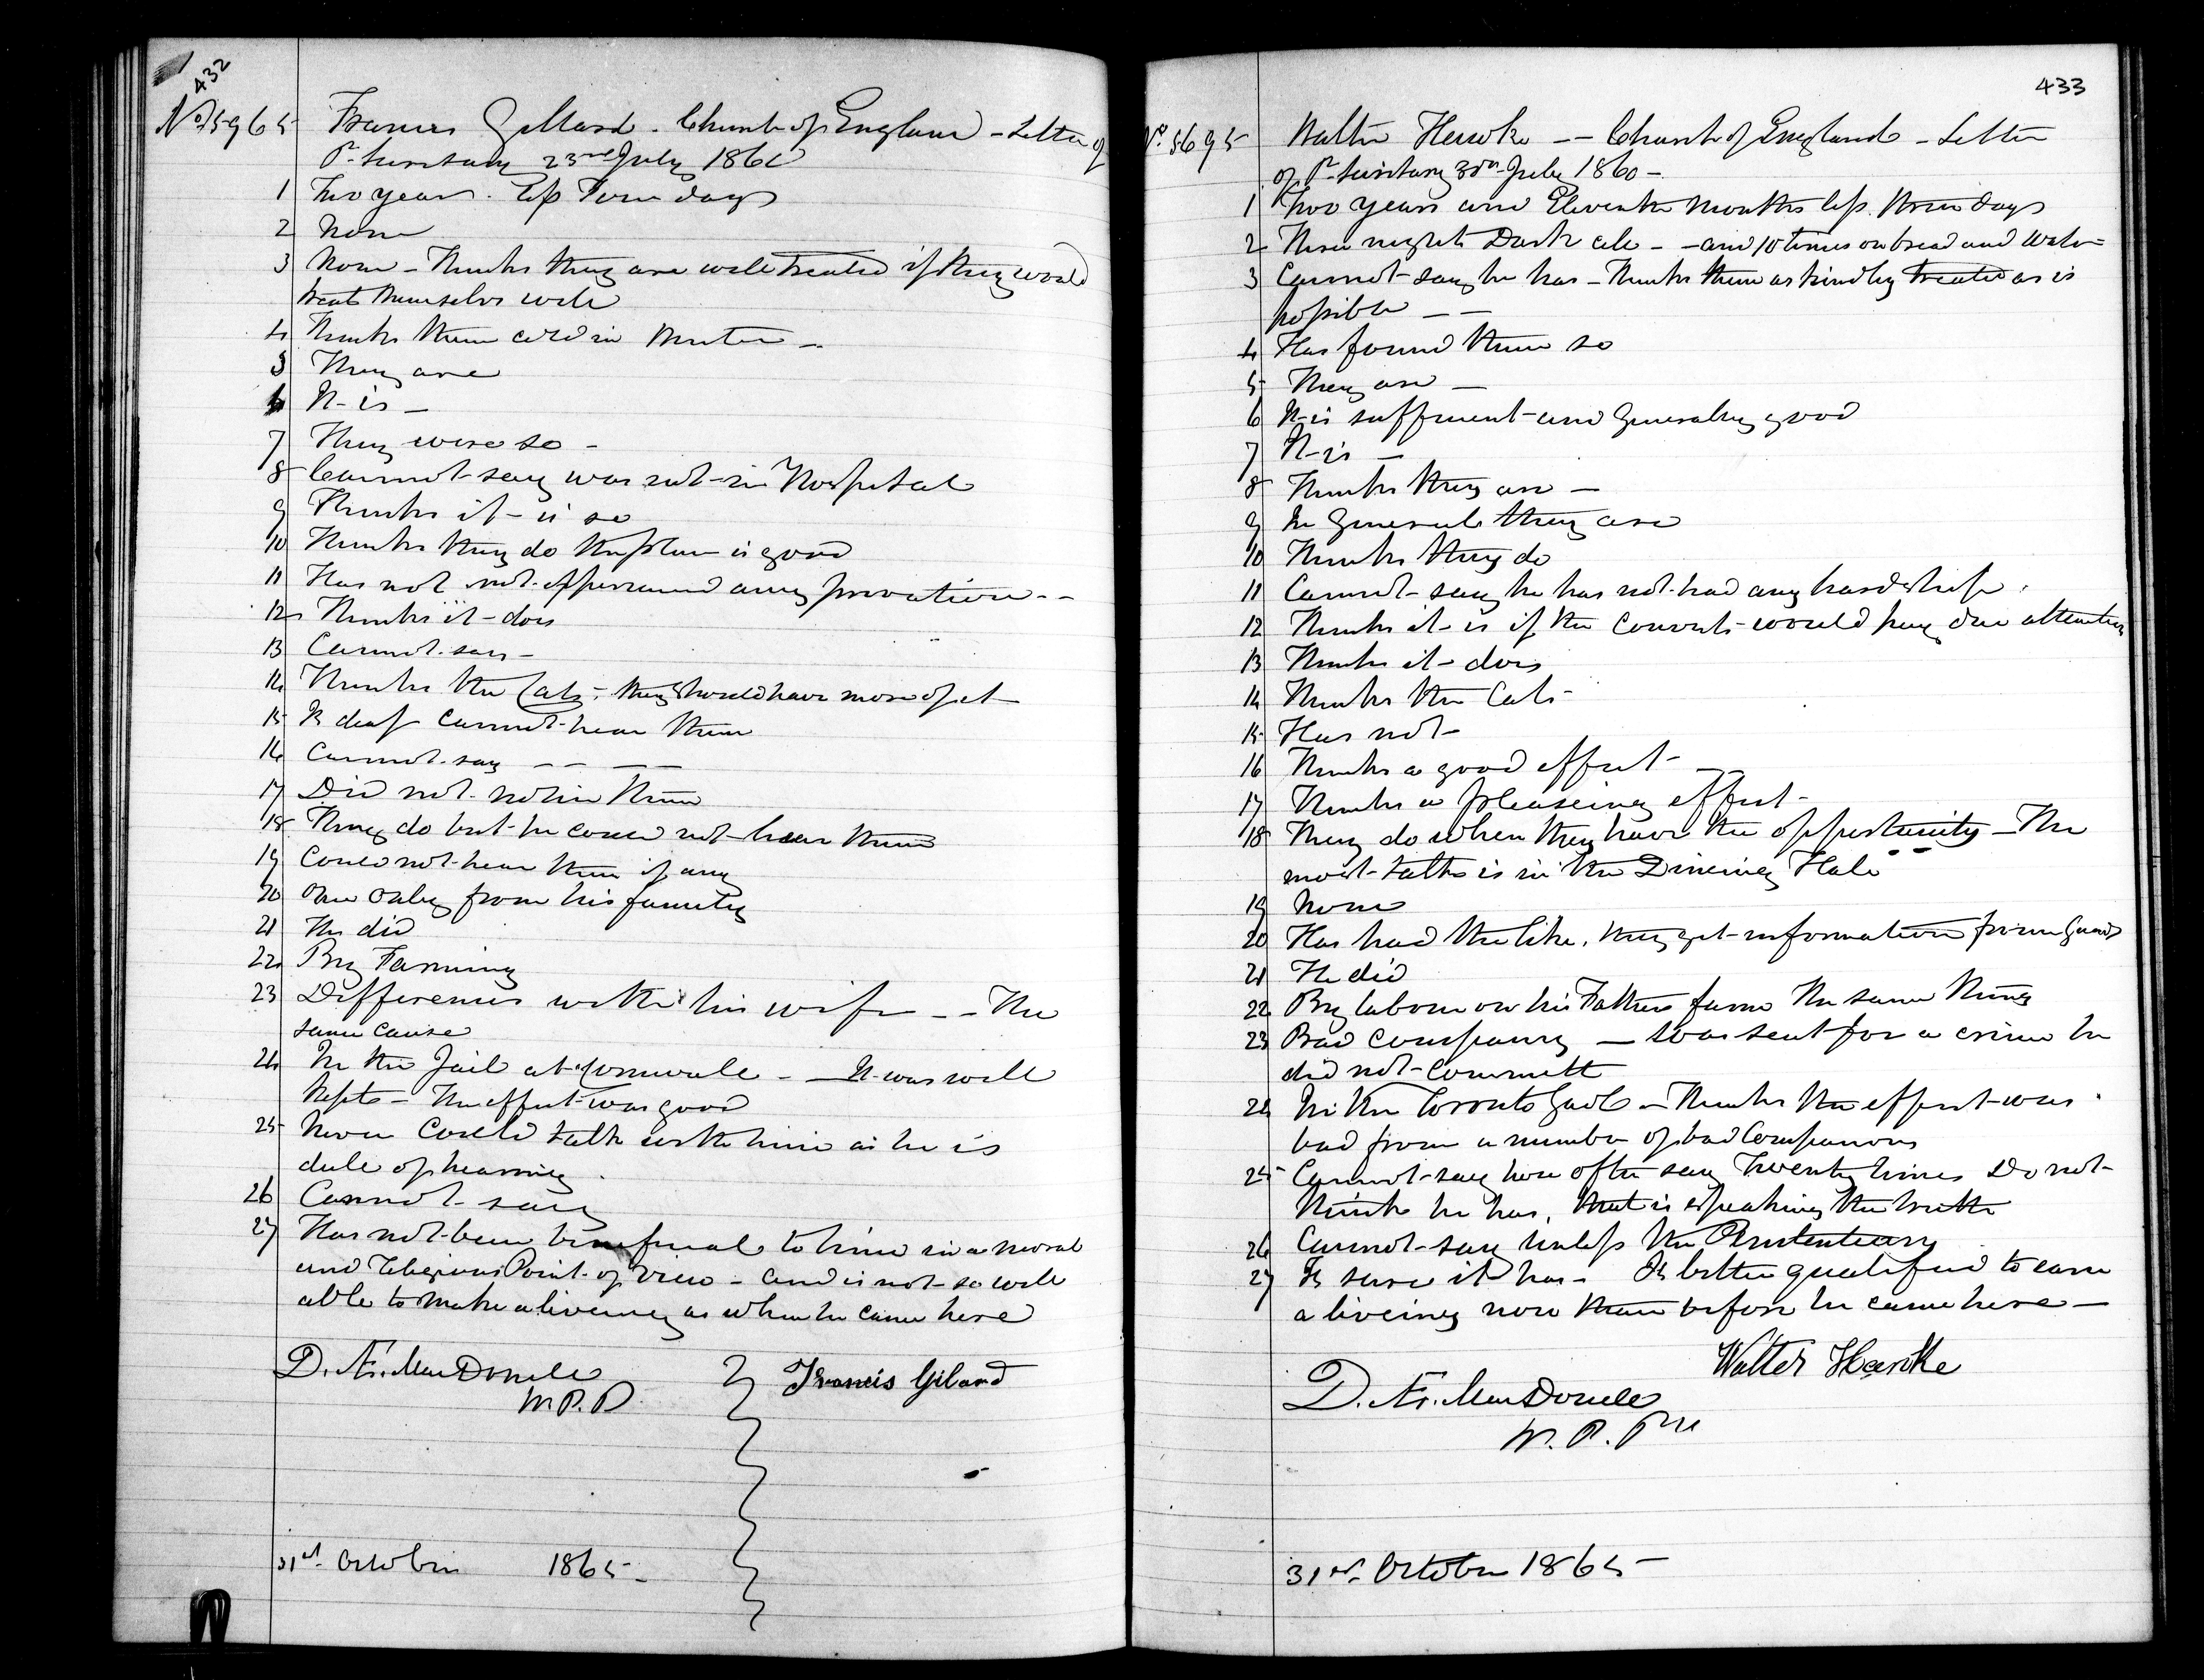 432
No 5965 Francis Gillard - Church of England - Letter of
Pr. Secretary 23rd July 186
1 Two years less Four days
2 None
3 None - Thinks they are well treated if they would
treat themselves well
4 Thinks them cold in Winter -
5 They are
6 It is -
7 They were so -
8 Cannot say was not in Hospital
9 Thinks it is so
10 Thinks they do the plan is good
11 Has not experienced any privation - -
12 Thinks it does
13 Cannot say -
14 Thinks the Cats, they should have more of it
15 Is deaf cannot hear them
16 Cannot say - - - -
17 Did not notice them
18 They do but he could not hear them
19 Could not hear them if any
20 One only from his family
21 He did
22 By Farming
23 Differences with his wife - - The
same cause
24 In the Jail at Cornwall - - It was well
kept - The effect was good
25 Never could talk with him as he is
dull of hearing.
26 Cannot say
27 Has not been beneficial to him in a moral
and Religious Point of View - and is not so well
able to make a liveing as when he came here
D. Æ. MacDonell Francis Giland
W.P.P
31st October 1865 -
433
No 5695 Walter Hawke - - Church of England - Letter
of Pr. Secretary 30th July 1860 -
1 Two years and Eleventh Months less three days
2 Three nights Dark cell - - and 10 times on bread and Water
3 Cannot say he has - Thinks them as kindly treated as is
possible - -
4 Has found them so
5 They are -
6 It is sufficient and Generally good
7 It is -
8 Thinks they are -
9 In General they are
10 Thinks they do
11 Cannot say he has not had any hardship.
12 Thinks it is if the Convicts would pay due attention
13 Thinks it does
14 Thinks the Cats -
15 Has not -
16 Thinks a good effect - -
17 Thinks a pleaseing effect -
18 They do when they have the opportunity - The
most talk is in the Dineing Hall
19 None
20 Has had the like, they get information from Guards
21 He did
22 By labour on his Fathers farm The same thing
23 Bad Company - Was sent for a crime he
did not Committ
24 In the Toronto Gaol - Thinks the effect was
bad from a number of bad Companions
25 Cannot say how often say Twenty times Do not
think he has, that is speaking the truth
26 Cannot say unless the Penitentiary
27 Is sure it has - Is better qualified to earn
a liveing now than before he came here -
Walter Hawke
D. Æ. MacDonell
W. P. P
31st October 1865 -